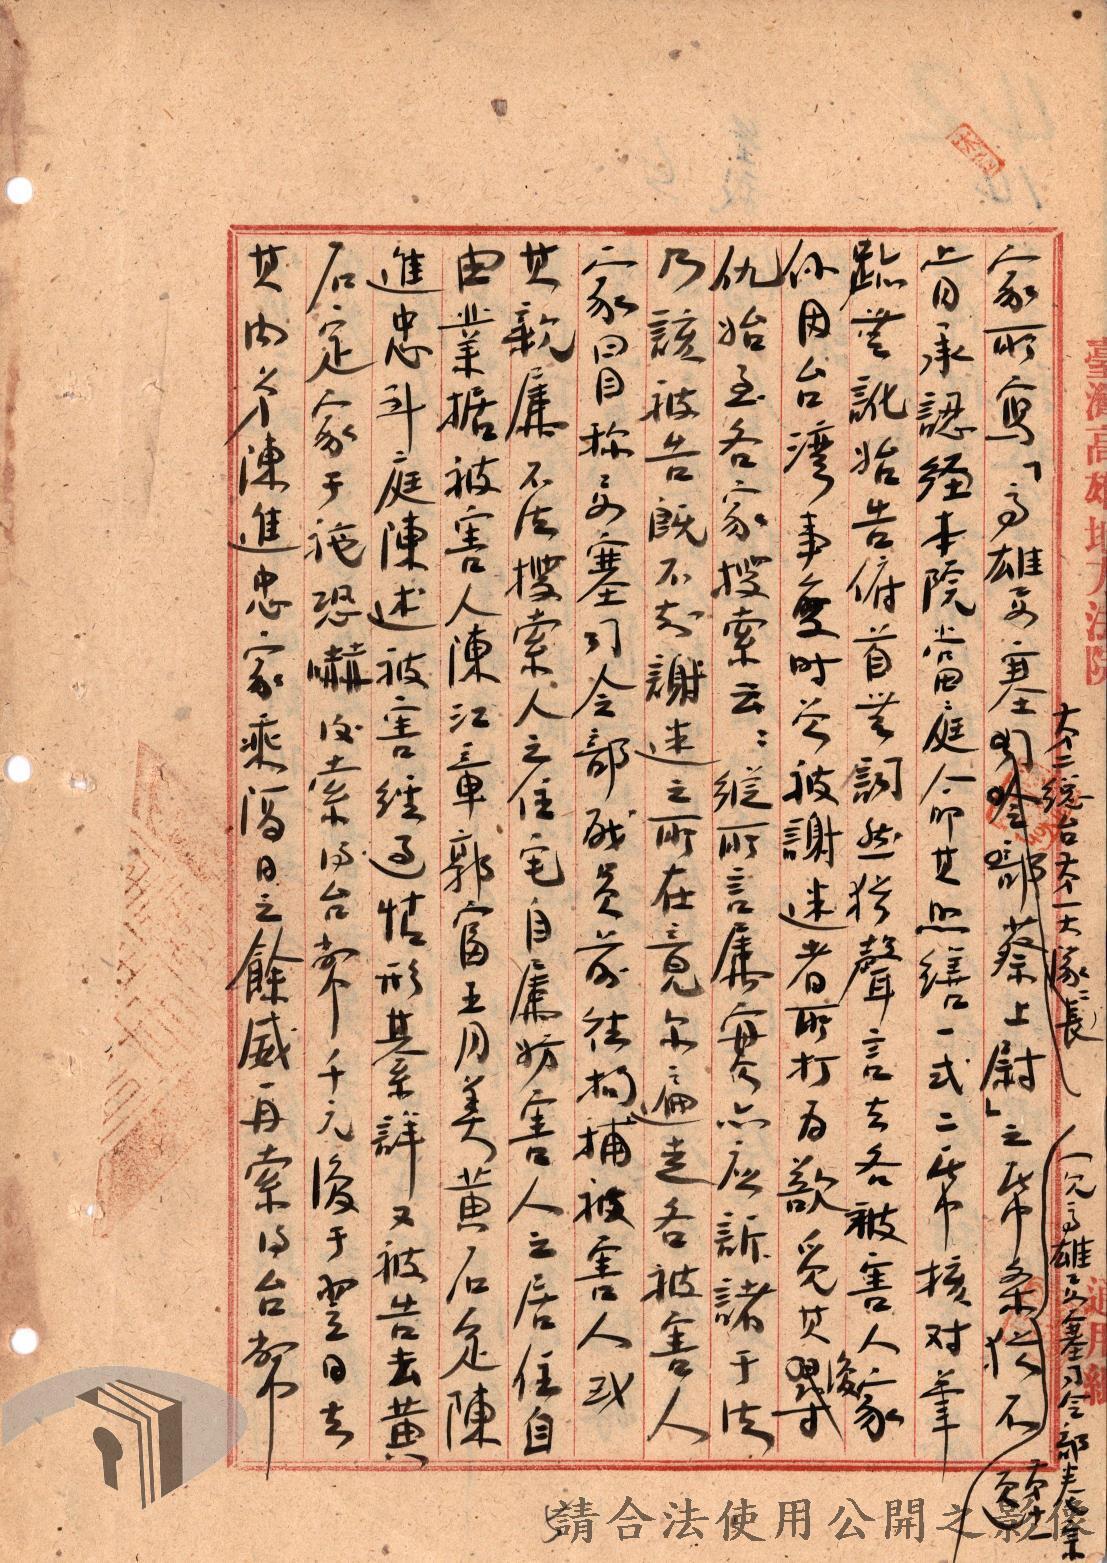 臺灣高雄地方法院
通用紙
第二總台第一大隊長
(見高雄要塞司令部
家所寫「高雄要塞司令部蔡上尉」之帋條猶不
肯承認經本院當庭令其照繕一式二帋核对筆
跡無訛始告俯首無詞然猶聲言去各被害人家
係因台灣事變時曾被謝迷者所打为欲覓其後尋
仇始至各家搜索云云縱所言屬實亦应訴諸于法
乃該被告既不知謝迷之所在竟尔遍走各被害人
家冒称要塞司令部職員前往拘捕被害人或
其親屬不法搜索人之住宅自屬妨害人之居住自
由業據被害人陳江章郭富王月美黄石定陳
進忠到庭陳述被害經過情形綦詳又被告去黄
石定家于施恐嚇後索得台幣千元後于翌日去
其内弟陳進忠家乘隔日之餘威再索得台幣
請合法使用公開之影像